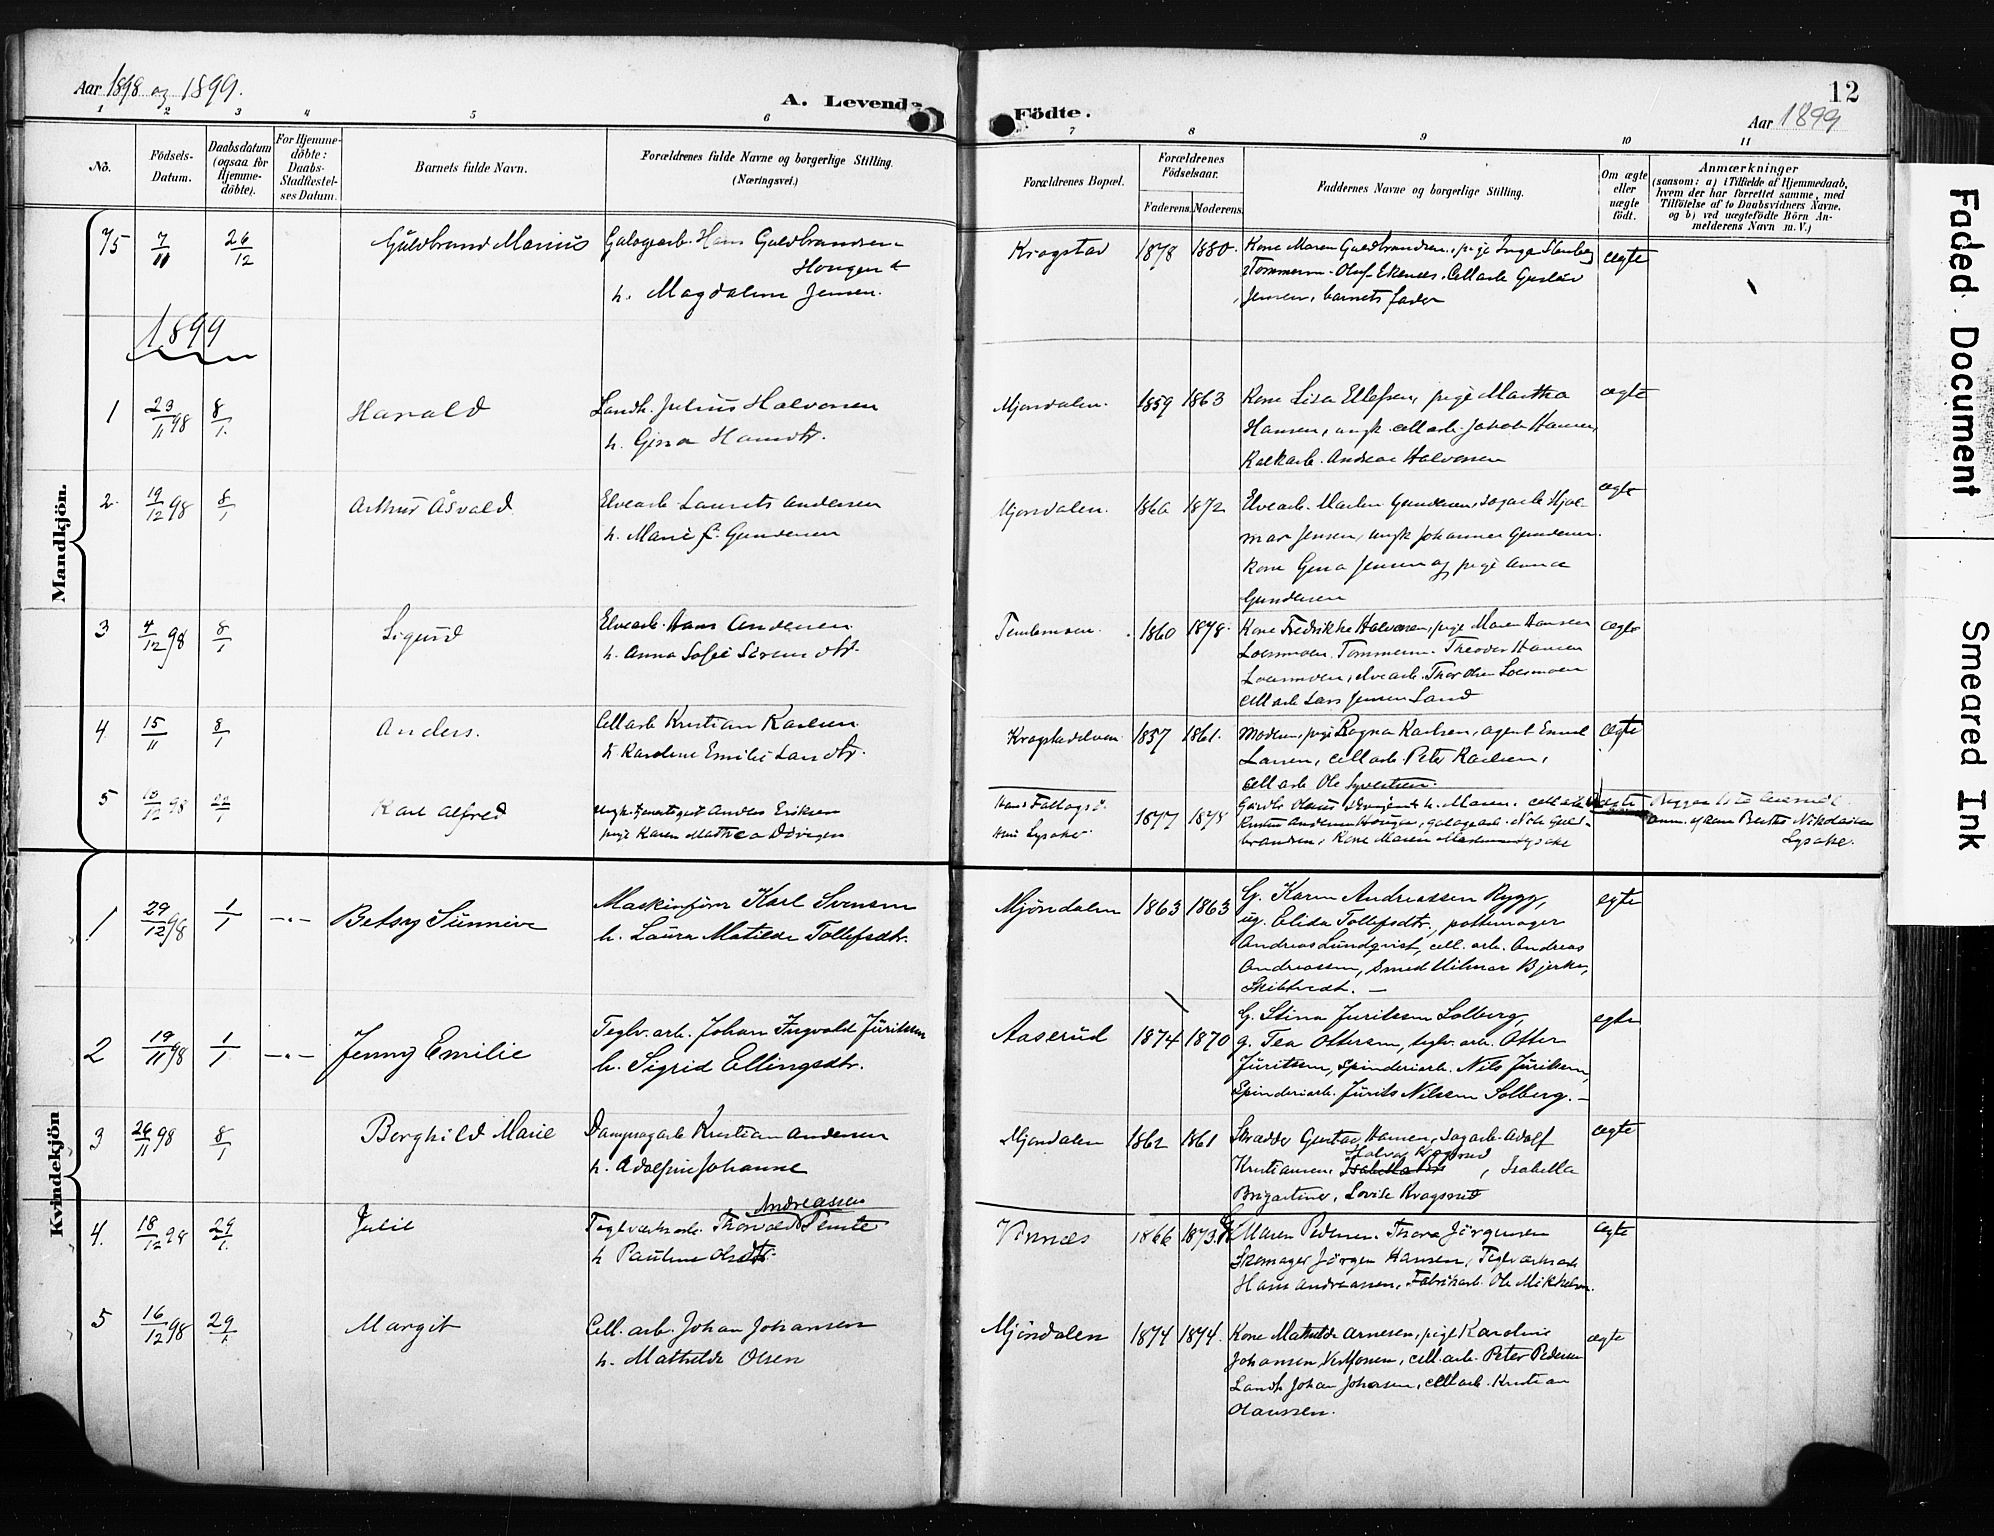 Aar 1898 og 1899.
A. Levende
Födte.
12
Aar 1899
1 2 3 4 5 6 7 8 9 10 11
No.
Födsels-Datum.
Daabsdatum (ogsaa for Hjemme-döbte).
For Hjemme-döbte: Daabs-Stadfæstel-ses Datum.
Barnets fulde Navn.
Forældrenes fulde Navne og borgerlige Stilling.
(Næringsvei.)
Forældrenes Bopæl.
Forældrenes Födselsaar.
Faderens. Moderens.
Faddernes Navne og borgerlige Stilling.
Om ægte eller uægte födt.
Anmærkninger
(saasom: a) i Tilfælde af Hjemmedaab,
hvem der har forrettet samme, med
Tilföielse af to Daabsvidners Navne,
og b) ved uægtefödte Börn An-
melderens Navn m. V.)
Mandkjön.
75 7/11 26/12 Guldbrand Marius
Hans Guldbrandsen
Hougen &
h. Magdalene Jensen.
Krogstad 1878 1880.
Kone Maren Guldbrandsen, pige Inga Stenberg
Tømmerm. Oluf Ekenes. Cellarb Gustav
Jensen, barnets fader
ægte
1899
1 23/11 98 8/1. Harald
Landh. Julius Halvorsen
h. Gina Hansdtr.
Mjøndalen. 1859 1863
Kone Lisa Ellefsen, pige Martha
Hansen, ungk. cellarb. Jakob Hansen,
Andreas Halvorsen
ægte
2. 19/12 98 8/1 Arthur Åsvald
Elvearb. Laurits Andersen
h. Marie f. Gundersen
Mjøndalen. 1860 1872
Elvearb. Martin Gundersen, sagarb Hjal-
mar Jensen, ungk Johannes Gundersen.
Kone Gina Jensen og pige Anna
Gundersen
ægte
3 4/12 98 8/1 Sigurd
Elvearb. Hans Andersen
h. Anna Sofie Sørensdtr.
1860 1878.
Kone Fredrikke Halvorsen, pige Maren Hansen
Loesmoen. Tømmerm. Theodor Hansen
Loesmoen, elvearb. Thor Olsen Loesmoen
cellarb Lars Jensen Sand
ægte
4 15/11 8/1 Anders.
Cellarb Kristian Karlsen
h. Karoline Emilie Larsdtr.
Krogstadelven 1857 1861.
Moderen, pige Ragna Karlsen, agent Emil
Larsen, cellarb. Peter Karlsen,
cellarb Ole Syvertsen.
ægte
5 13/12 98 22/1 Karl Alfred
Anders Eriksen
pige Karen Mathea
1877 1878
h. Maren. cellarb
Kristen Andersen Hougen, galogearb. Nils Guld-
brandsen, Kone Maren
Berthe Nikolaisen
Lysaker.
Kvindekjön
1 29/12 98 1/1 -"- Betsy Sunnive
Maskinfører Karl Svensen
h. Laura Matilde Tollefsdtr.
Mjöndalen 1863 1863
G. Karen Andreassen Rygg,
ug. Elida Tollefsdtr., pottemager
Andreas Lundqvist, cell. arb. Andreas
Andreassen, Smed Hilmar Bjerke,
Skibtvedt. —
egte
2 19/11 98 1/1 -"- Jenny Emilie
Teglv. arb. Johan Ingvald Juritsen
h. Sigrid Ellingsdtr.
Aaserud 1874 1870
G. Stina Juritsen Solberg,
g. Tea Ottersen, teglv. arb. Otter
Juritsen, Spinderiarb. Nils Juritsen,
Spinderiarb. Jurits Nilsen Solberg. —
egte
3 26/11 98 8/1 Borghild Marie
Dampsagarb Kristian Andersen
h. Adolfine Johanne
Mjöndalen 1862 1861
Skrædder Gustav Hansen, Sagarb. Adolf
Kristiansen, Isabella
Lovise Kragsrud
ægte
4. 18/12 98 29/1. Julie
Andreassen
Teglværksarb. Thorvald
h Pauline Olsdtr.
Vinnæs 1866 1873.
Maren Pedersen. Thora Jörgensen
Skomager Jörgen Hansen, Teglværksarb
Hans Andreassen, Fabrikarb. Ole Mikkelsen.
ægte
5 16/12 98 29/1. Margit
Cell. arb. Johan Johansen
h. Mathilde Olsen
Mjöndalen 1874 1874.
Kone Mathilde Arnesen, pige Karoline
Johansen Vestfossen, cell. arb. Peter Pedersen
Landh Johan Johansen, cellarb. Kristian
Olaussen.
ægte
Faded Document
Smeared Ink